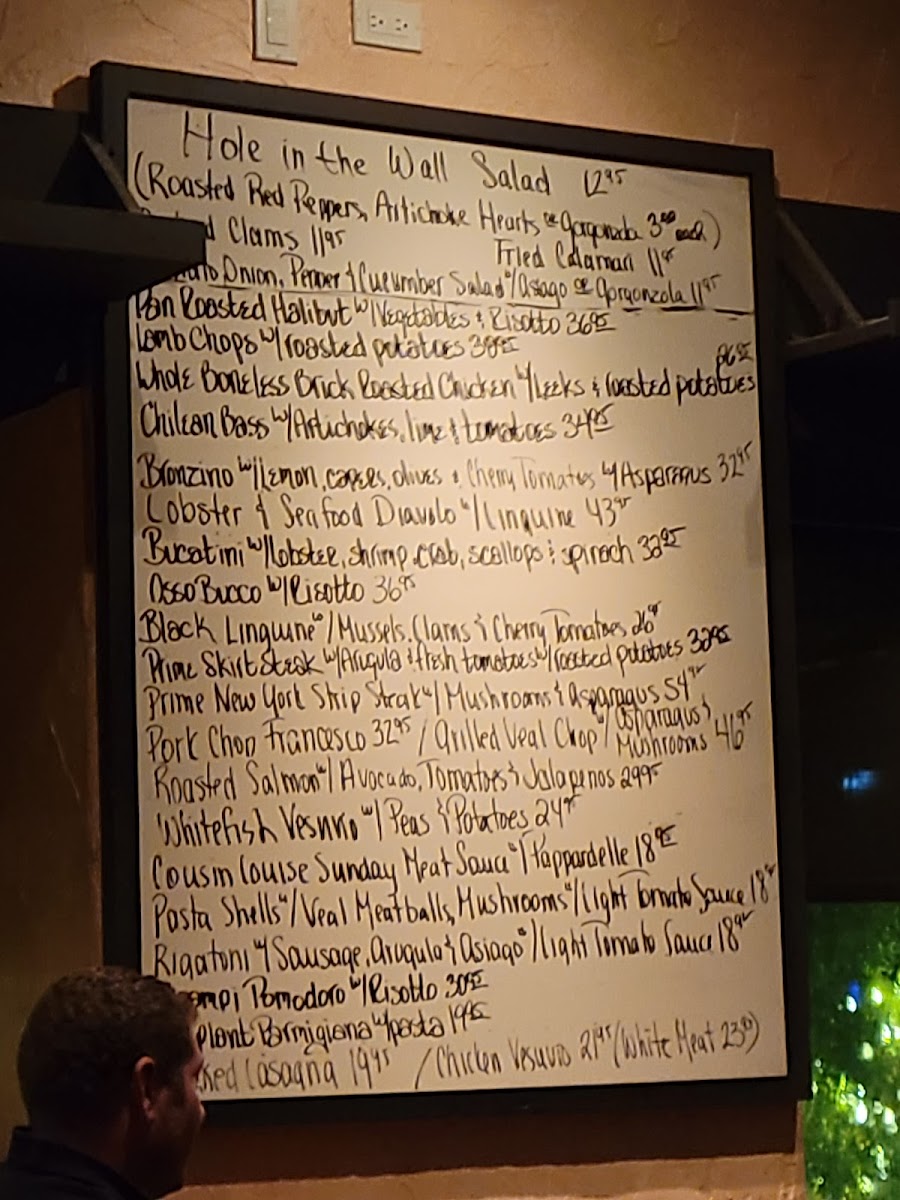 Hole in the Wall Salad 12 95
(Roasted Red Peppers, Artichoke Hearts or Gorgonzola 3 00 each)
Clams 11 95 Fried Calamari 11 95
Onion, Pepper & Cucumber Salad w/Asiago or Gorgonzola 11 95
Pan Roasted Halibut w/Vegetables & Risotto 36 95
Lamb Chops w/roasted potatoes 38 95
Whole Boneless Brick Roasted Chicken w/Leeks & roasted potatoes 26 95
Chilean Bass w/Artichokes, lime & tomatoes 34 95
Bronzino w/Lemon, capers, olives & Cherry Tomatoes w/Asparagus 32 95
Lobster & Seafood Diavolo w/Linguine 43 95
Bucatini w/Lobster, shrimp, crab, scallops & spinach 32 95
Osso Bucco w/Risotto 36 95
Black Linguine w/Mussels, Clams & Cherry Tomatoes 26 95
Prime Skirt Steak w/Arugula & fresh tomatoes w/roasted potatoes 32 95
Prime New York Strip Steak w/Mushrooms & asparagus 54 95
Pork Chop Francesco 32 95 / Grilled Veal Chop w/Asparagus & Mushrooms 46 95
Roasted Salmon w/Avocado, Tomatoes & Jalapenos 29 95
Whitefish Vesuvio w/Peas & Potatoes 24 95
Cousin Louise Sunday Meat Sauce w/Pappardelle 18 95
Pasta Shells w/Veal Meatballs, Mushrooms w/Light Tomato Sauce 18 95
Rigatoni w/Sausage, Arugula & Asiago w/Light Tomato Sauce 18 95
Pomodoro w/Risotto 30 95
Parmigiana w/pasta 19 95
Lasagna 19 95 / Chicken Vesuvio 21 95 (White Meat 23 50)